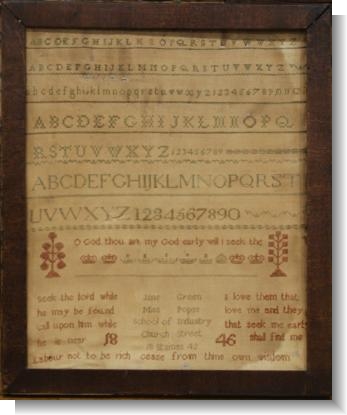 ABCDEFGHIJKLMNOPQRSTUVWXYZ
ABCDEFGHIJKLMNOPQRSTUVWXYZ
abcdefghijklmnopqrstuvwxyz1234567890
ABCDEFGHIJKLMNOPQ
RSTUVWXYZ123456789
ABCDEFGHIJKLMNOPQRST
UVWXYZ1234567890
O God thou art my God early will i seek the
seek the lord while Jane Green i love them that
he may be found Miss Popes love me and they
call upon him while School of Industry that seek me early
he is near 18 Church Street 46 shall find me
St 42
Labour not to be rich cease from thine own wisdom